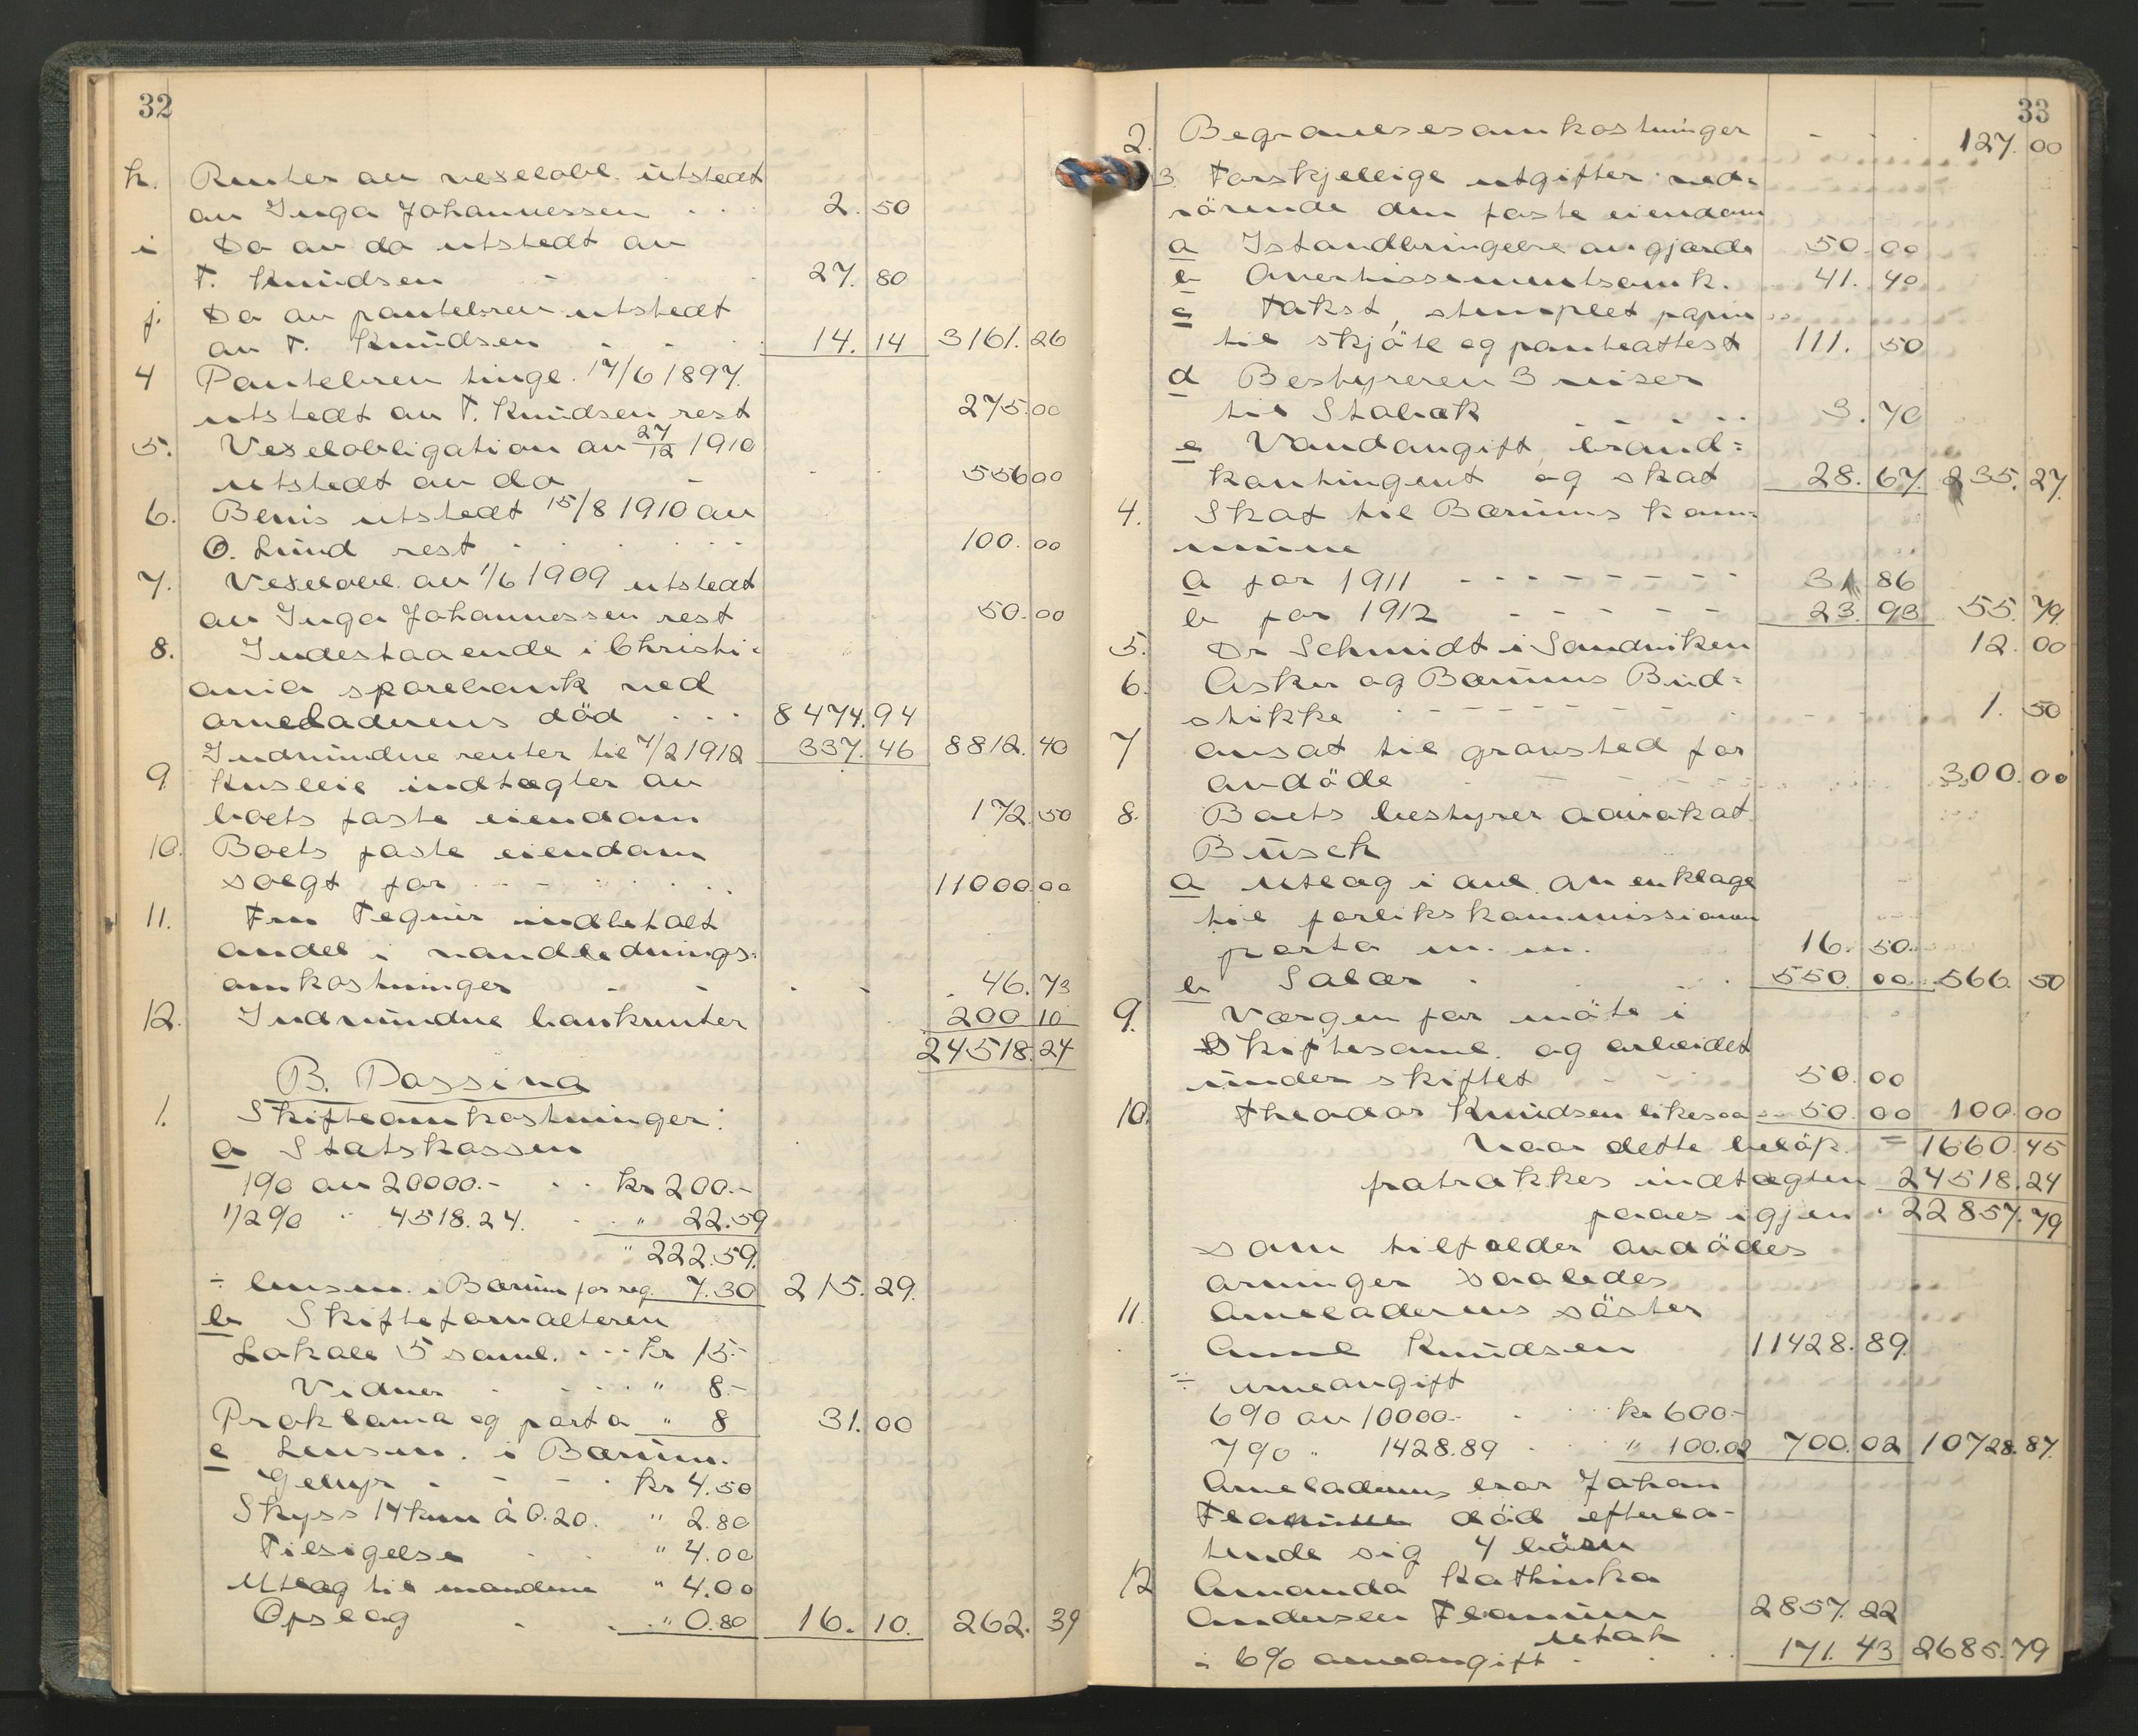 32
h. Renter av vexelobl. utstedt
av Inga Johannessen . . . 2.50
i Do av do utstedt av
T. Knudsen - . 27.80
j. Do av pantebrev utstedt
av T. Knudsen . . . 14.14 3161.26
4 Pantebrev tingl. 17/6 1897.
utstedt av T. Knudsen rest 275.00
5. Vexelobligation av 27/12 1910
utstedt av do - . . 556 00
6. Bevis utstedt 15/8 1910 av
O. Lund rest . . . . . 100.00
7. Vexelobl. av 1/6 1909 utstedt
av Inga Johannessen rest 50.00
8. Indestaaende i Christi-
ania sparebank ved
arveladerens död . . . 8474.94
Indvundne renter til 7/2 1912 337.46 8812.40
9. Husleie indtægter av
boets faste eiendom 172.50
10. Boets faste eiendom
solgt for . . . 11000.00
11. Fru Tegner indbetalt
andel i vandlednings-
omkostninger - - . . 46.73
12. Indvundne bankrenter 200 10
24518.24
B. Passiva
1. Skifteomkostninger:
a Statskassen
1% av 20000.- . . kr 200.-
1/2% " 4518.24. . " 22.59
" 222.59.
÷ lensm. i Bærum for reg. 7.30 215.29.
b Skifteforvalteren
Lokale 5 saml. . . . kr 15.-
Vidner . . . " 8.-
Proklama og porto " 8 31.00
c Lensm. i Bærum.
Gebyr . - - . kr 4.50
Skyss 14 km à 0.20. " 2.80
Tilsigelse . . " 4.00
Utlæg til mændene " 4.00
Opslag . . " 0.80 16.10. 262.39
33
2. Begravelsesomkostninger - . . 127.00
3. Forskjellige utgifter ved-
rörende den faste eiendom
a Istandbringelse av gjærde 50.00
b Avertissementsomk. 41.40
c Takst, stemplet papir
til skjöte og panteattest 111.50
d Bestyreren 3 reiser
til Stabæk . . . . 3.70
e Vandavgift, brand-
kontingent og skat 28.67. 235.27.
4. Skat til Bærums kom-
mune
a for 1911 - - - - - - - - 31 86
b for 1912 - - - - - 23.93 55.79.
5. Dr Schmidt i Sandviken 12.00
6. Asker og Bærums Bud-
stikke - - - - - - 1.50
7 avsat til gravsted for
avdöde . - - - 300.00
8. Boets bestyrer advokat
Busch
a utlæg i anl. av en klage
til forlikskommissionen
porto m. m. 16.50.
b Salær . . 550 00 566.50
9. Værgen for möte i
Skiftesaml. og arbeidet
under skiftet . . . 50.00
10. Theodor Knudsen likesaa 50.00 100.00
Naar dette belöp = 1660.45
fratrækkes indtægten 24518.24
faaes igjen . 22857.79
som tilfalder avdödes
arvinger saaledes
11. Arveladerens söster
Anne Knudsen 11428.89.
÷ arveavgift
6% av 10000.- . . kr 600.-
7% " 1428.89 . " 100.02 700.02 10728.87.
Arveladerens bror Johan
död efterla-
tende sig 4 börn
12 Amanda Kathinka
Andersen 2857.22
utak
÷ 6% arveavgift . . . 171.43 2685.79